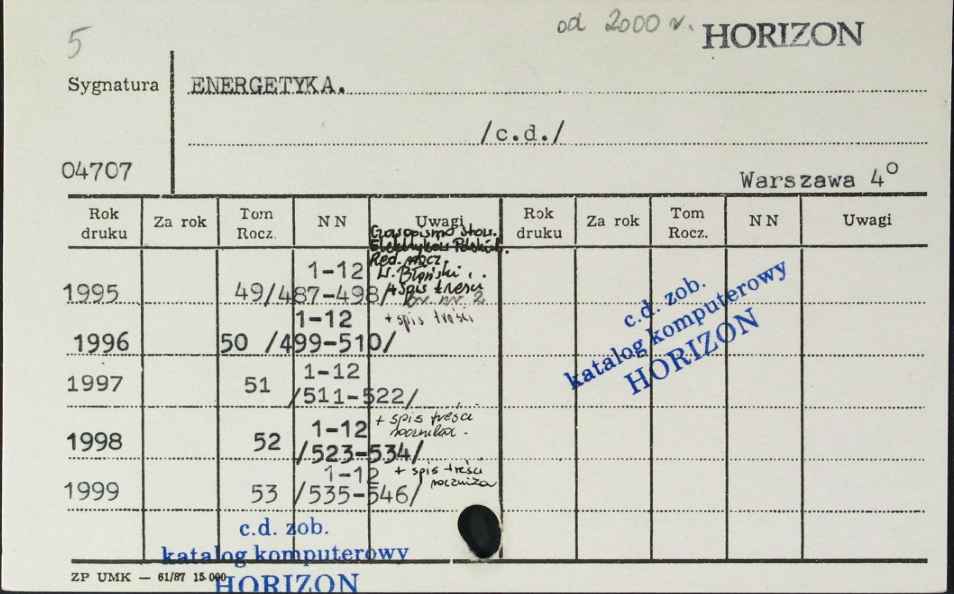 5
od 2000 r. HORIZON
Sygnatura ENERGETYKA.
/c.d./
04707
Warszawa 4°
Rok druku Za rok Tom Rocz. NN Uwagi Rok druku Za rok Tom Rocz. NN Uwagi
Czasopismo Stow.
Elektryków Polskich.
Red. nacz.
W. Błoński
1-12 + Spis treści
1995 49/487-498/ nr 2
1-12 + spis treści
1996 50 /499-510/
1-12
1997 51 /511-522/
1-12 + spis treści
rocznika.
1998 52 /523-534/
1-12 + spis treści
rocznika
1999 53 /535-546/
c.d. zob.
katalog komputerowy
HORIZON
c.d. zob.
katalog komputerowy
HORIZON
ZP UMK — 61/87 15.000